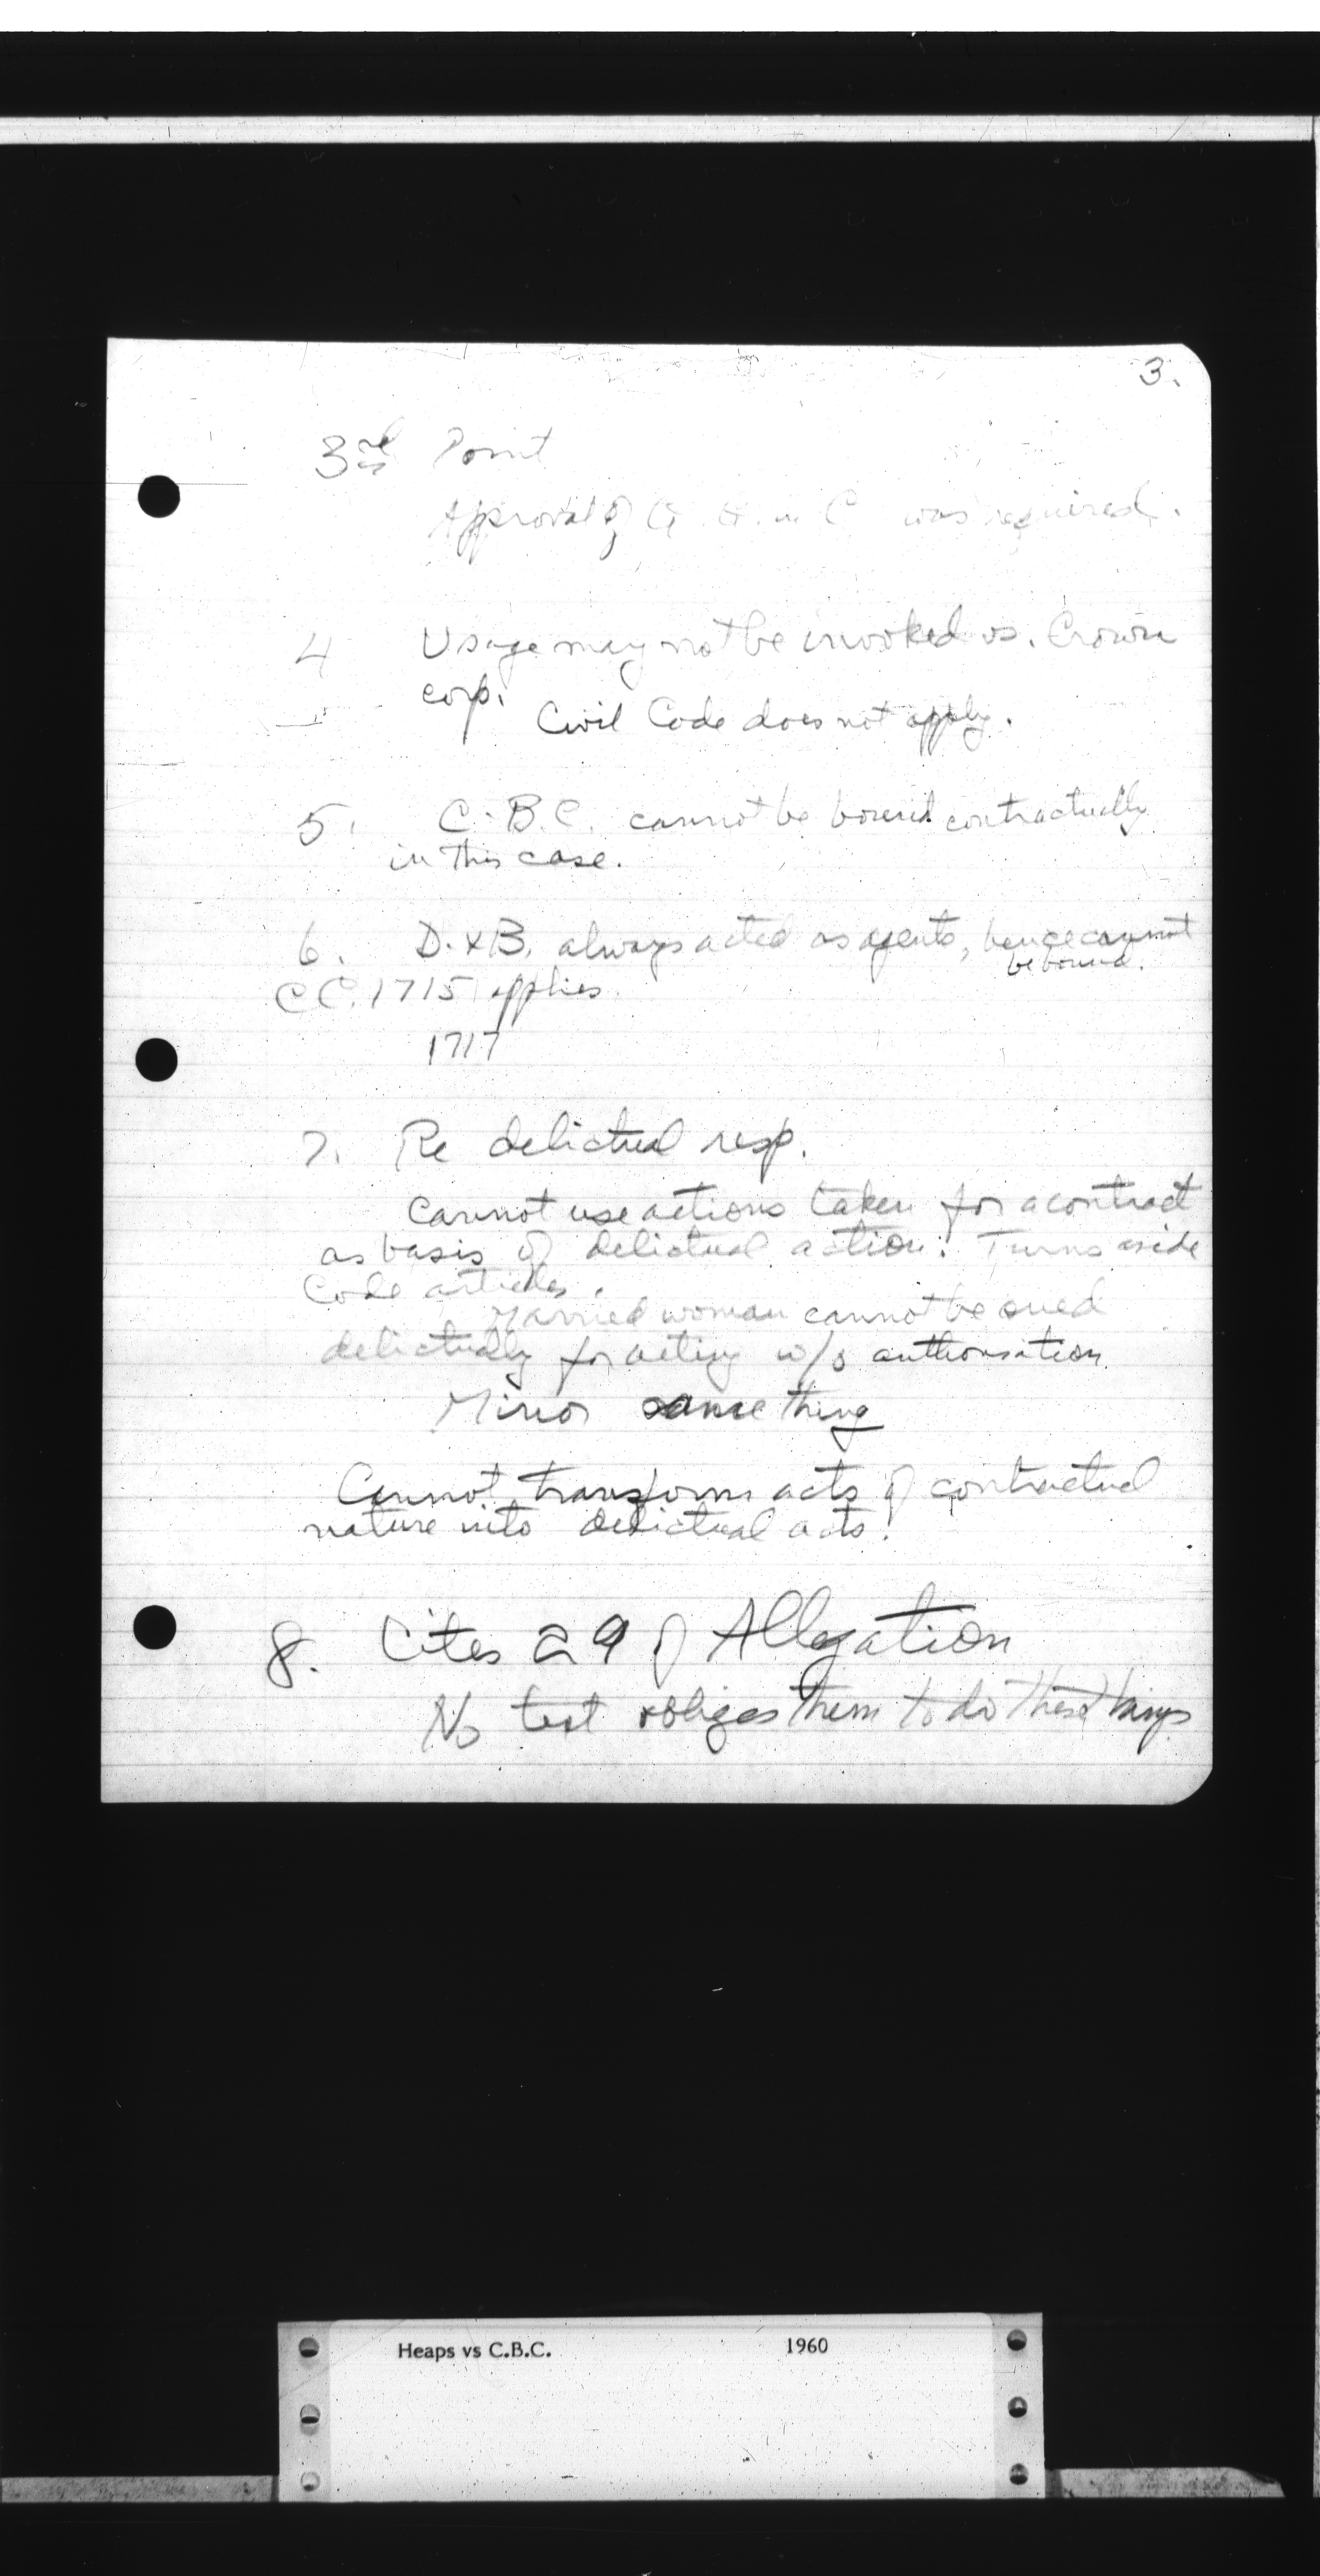 3.
3rd Point
Approval of G. G. in C was required.
4 Usage may not be invoked vs. Crown
corp.
Civil Code does not apply.
5. C.B.C. cannot be bound contractually
in this case.
6. D. & B. always acted as agents, hence cannot
be bound.
CC. 1715 applies.
1717
7. Re delictual resp.
Cannot use actions taken for a contract
as basis of delictual action. Turns aside
Code articles.
Married woman cannot be sued
delictually for acting w/o authorisation
Minor same thing
Cannot transform acts of contractual
nature into delictual acts.
8. Cites 29 of Allegation
No text obliges them to do these things
Heaps vs C.B.C. 1960